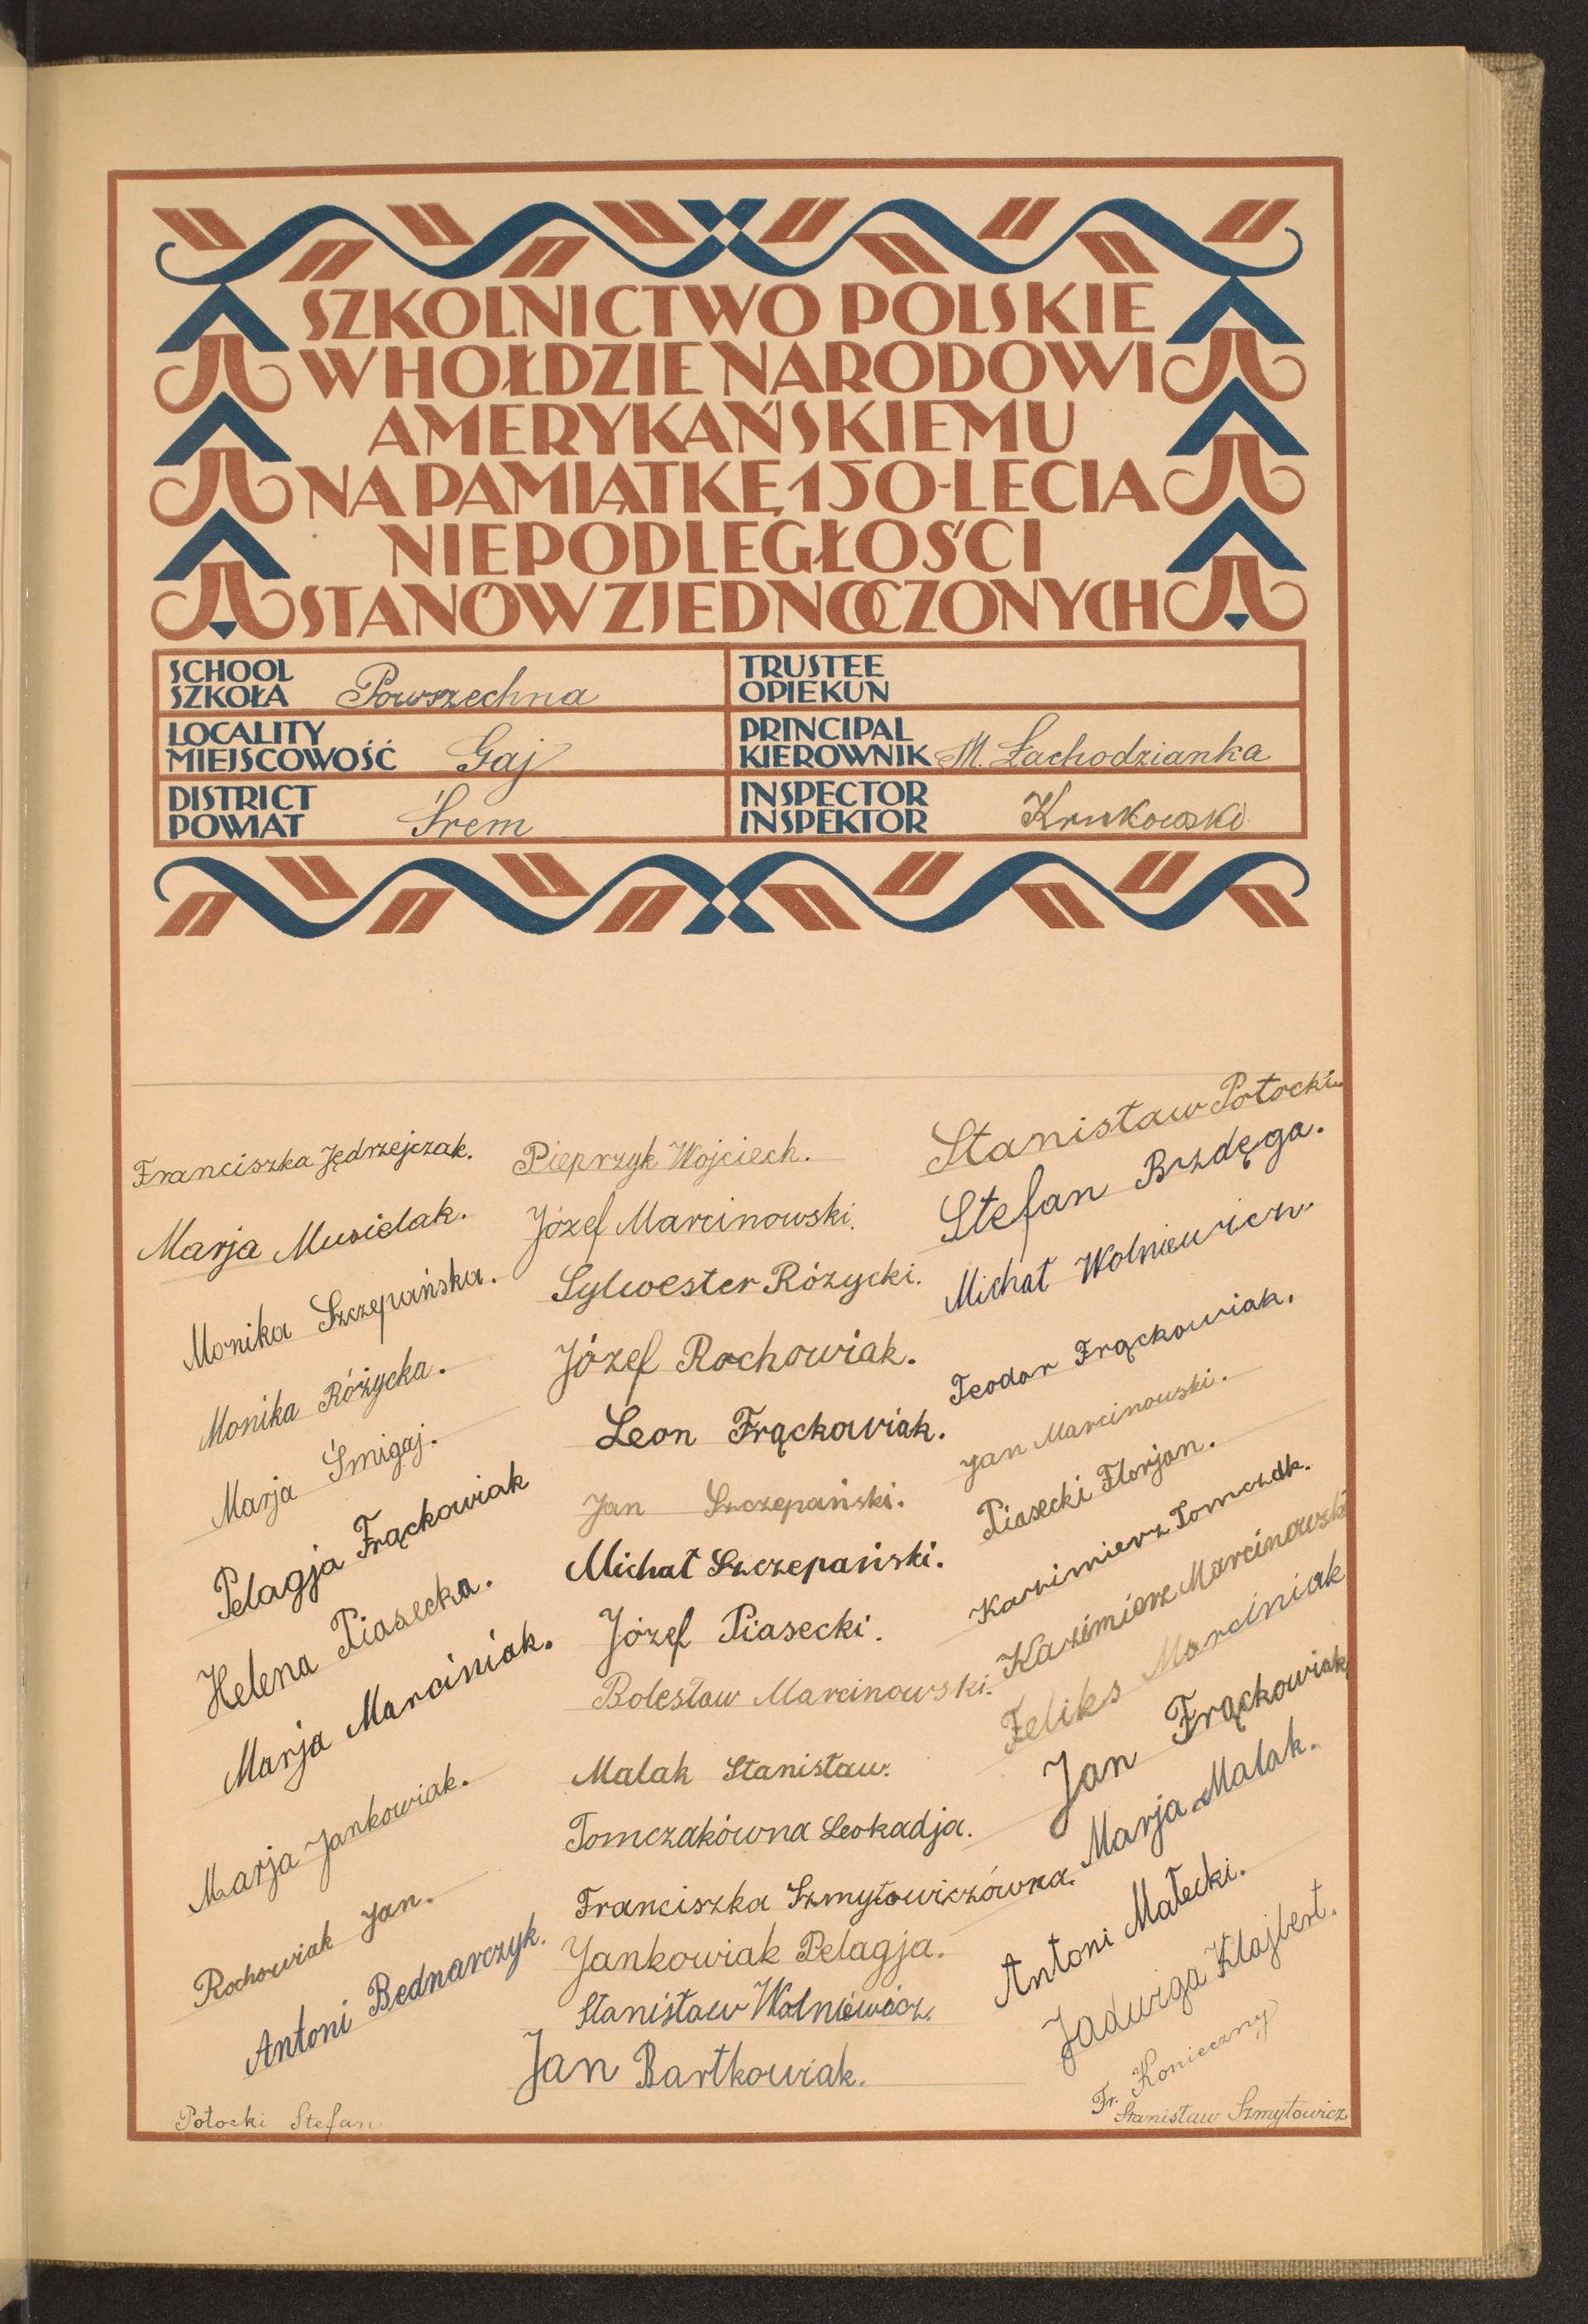 SZKOLNICTWO POLSKIE
W HOŁDZIE NARODOWI
AMERYKAŃSKIEMU
NA PAMIĄTKĘ 150-LECIA
NIEPODLEGŁOŚCI
STANÓW ZJEDNOCZONYCH
SCHOOL
SZKOŁA Powszechna
TRUSTEE
OPIEKUN
LOCALITY
MIEJSCOWOŚĆ Gaj
PRINCIPAL
KIEROWNIK M. Łachodzianka
DISTRICT
POWIAT Śrem
INSPECTOR
INSPEKTOR Krukowski
Franciszka Jędrzejczak.
Marja Musielak.
Monika Szczepańska.
Monika Różycka.
Marja Śmigaj.
Pelagja Frąckowiak
Helena Piasecka.
Marja Marciniak.
Marja Jankowiak.
Rochowiak Jan.
Antoni Bednarczyk.
Potocki Stefan
Pieprzyk Wojciech.
Józef Marcinowski.
Sylwester Różycki.
Józef Rochowiak.
Leon Frąckowiak.
Jan Szczepański.
Michał Szczepański.
Józef Piasecki.
Bolesław Marcinowski.
Malak Stanisław.
Tomczakówna Leokadja.
Franciszka Szmytowiczówna.
Jankowiak Pelagja.
Stanisław Wolniewicz.
Jan Bartkowiak.
Stanisław Potocki.
Stefan Brzdęga.
Michał Wolniewicz.
Teodor Frąckowiak.
Jan Marcinowski.
Piasecki Florjan.
Kazimierz Tomczak.
Kazimierz Marcinowski
Feliks Marciniak
Jan Frąckowiak
Marja Malak.
Antoni Małecki.
Jadwiga Klajbert.
Fr. Konieczny
Stanisław Szmytowicz